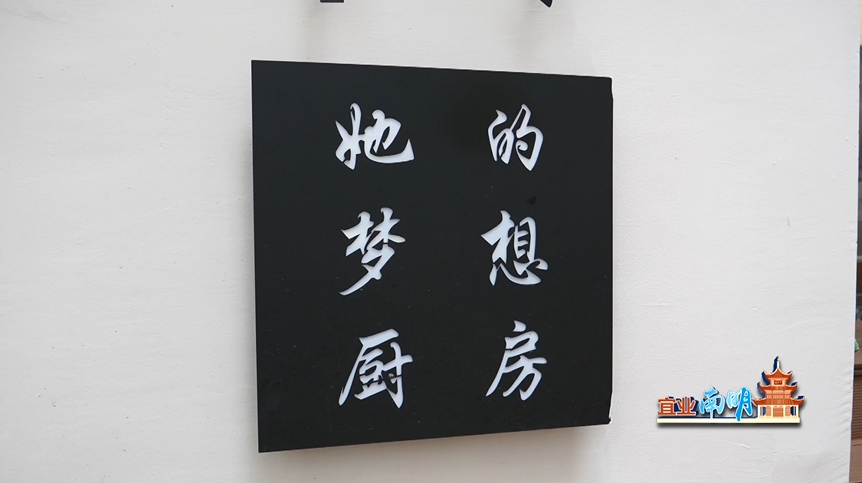 她的
梦想
厨房
宜业南明